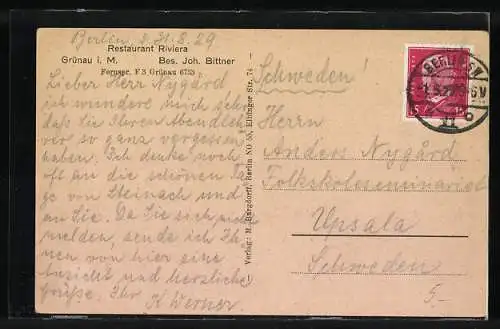 Berlin d. 31.8.29
Restaurant Riviera
Grünau i. M. Bes. Joh. Bittner
Fernspr. F 3 Grünau 6755
Lieber Herr Nygård
ich wundere mich sehr
daß Sie Ihren Abendleh-
rer so ganz vergessen
haben. Ich denke noch
oft an die schönen Ta-
ge von Steinach und
an Sie. Da Sie sich nicht
melden, sende ich Ih-
nen von hier eine
Ansicht und herzliche
Grüße. Ihr K Werner
Verlag: M. Bargdorff, Berlin NO 55, Elbinger Str. 74
Schweden!
BERLIN SW
Herrn
Anders Nygård
Folkskoleseminariet
Upsala
Schweden
5.-